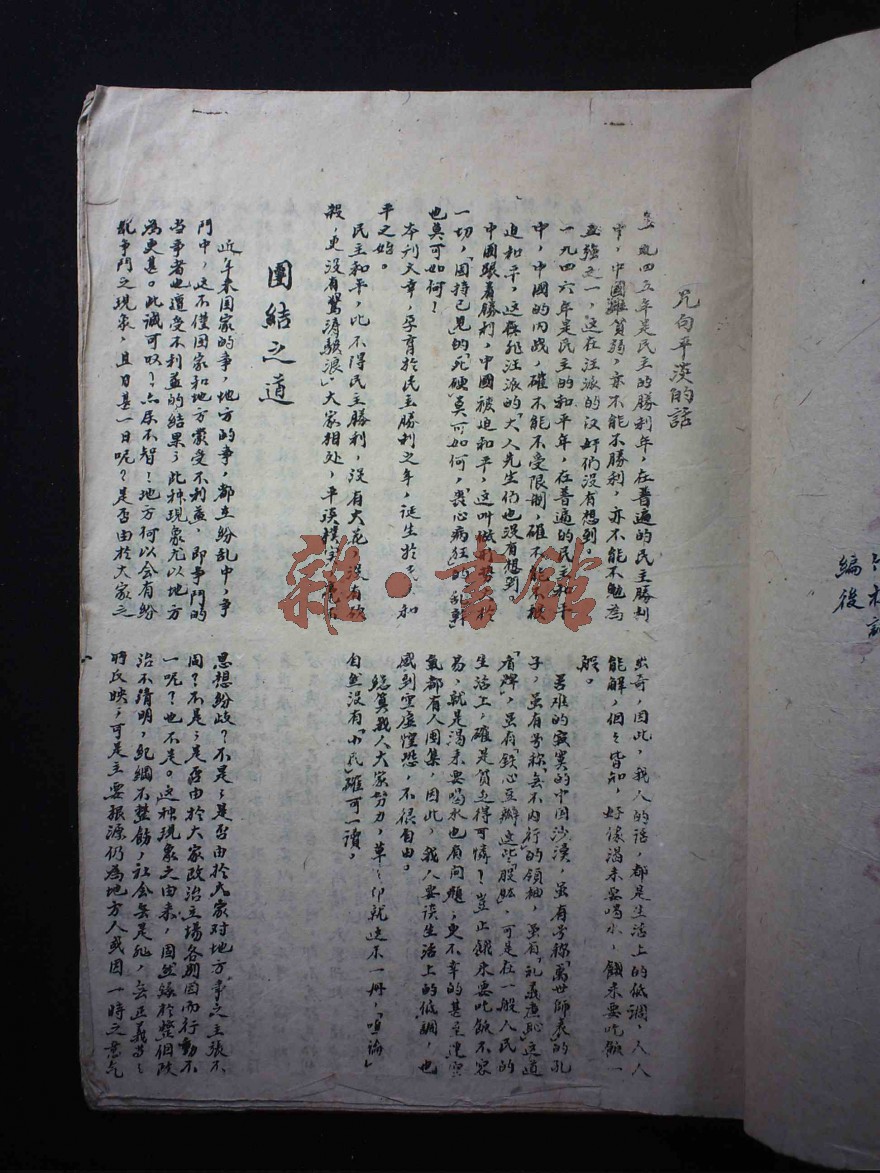 几句平淡的話
一九四五年是民主的勝利年，在普遍的民主勝利
中，中國雖貧弱，亦不能不勝利，亦不能不勉為
五強之一，這在汪派的汉奸們沒有想到。
一九四六年是民主的和平年，在普遍的民主和平
中，中國的內战，確不能不受限制，確不能不被
迫和平，這在非汪派的「大人先生們也沒有想到。
中國跟着勝利，中國被迫和平，這叫做
一切，「固持己見」的「死硬」莫可如何，「喪心病狂」的「乱幹」
也莫可如何？
本刊文章，孕育於民主勝利之年，诞生於民主和
平之始。
民主和平，比不得民主勝利，沒有火花，沒有砍
殺，更沒有驚濤駭浪，大家相处，平淡樸实
出奇，因此，我人的話，都是生活上的低調，人人
能解，個々皆知，好像渴来要喝水，餓来要吃飯一
般。
苦难的寂寞的中国沙漠，虽有号称「萬世師表」的孔
子，虽有号称「無不內行」的領袖，虽有「礼義廉恥」这道
「肩牌」，虽有「鉄心豆瓣」这些「股肱」，可是在一般人民的
生活上，確是貧乏得可憐？豈止餓来要吃飯不容
易，就是渴来要喝水也有问題，更不幸的甚至連空
氣都有人囤集，因此，我人要谈生活上的低調，也
感到空虛惶恐，不很自由。
総算我人大家努力，草々印就这本一冊，「喧論」
自然沒有，「小民」確可一讀。
團結之道
近年来国家的事，地方的事，都在紛乱中，爭
鬥中，这不僅国家和地方蒙受不利益，即爭鬥的
当事者也遭受不利益的結果；此种现象尤以地方
為更甚。此誠可叹？亦屬不智！地方何以会有紛
乱爭鬥之现象，且日甚一日呢？是否由於大家之
思想紛歧？不是；是否由於大家对地方事之主張不
同？不是；是否由於大家政治立場各别因而行動不
一呢？也不是。这种现象之由来，固然緣於整個政
治不清明，紀綱不整飭，社会無是非，無正義等々
時氏映；可是主要根源仍為地方人或因一時之意气
編後